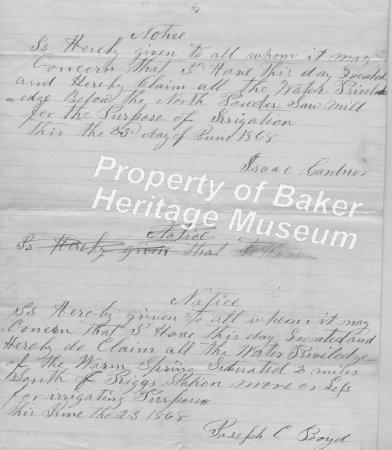 Notice
Is Hereby given to all whom it may
Concern that I Have this day Located
and Hereby Claim all the Water Priveled
=edge Below the North Powder Saw Mill
for the Purpose of Irrigation
this the 23 day of June 1868
Isaac Cardner
Property of Baker
Heritage Museum
Notice
Is Hereby given that
Notice
Is Hereby given to all whom it may
Concern that I Have this day Located and
Hereby do Claim all the Water Priveledge
of the Warm Spring Situated 2 miles
South of Griggs Station more or less
for irrigating Purposes
this June the 23 1868
Joseph C Boyd